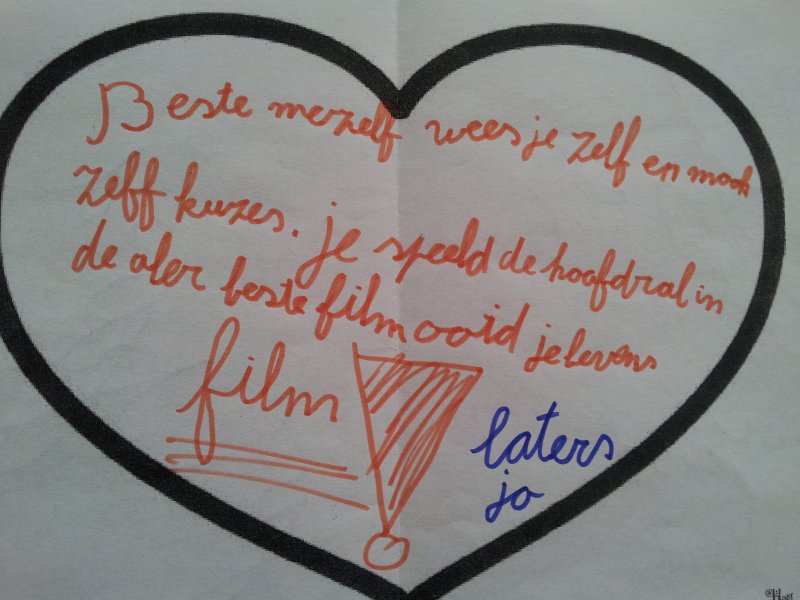 Beste merzelf wees je zelf en maak
zelf kuzes. je speeld de hoofdral in
de aler beste film ooid je levens
film!
laters
jo